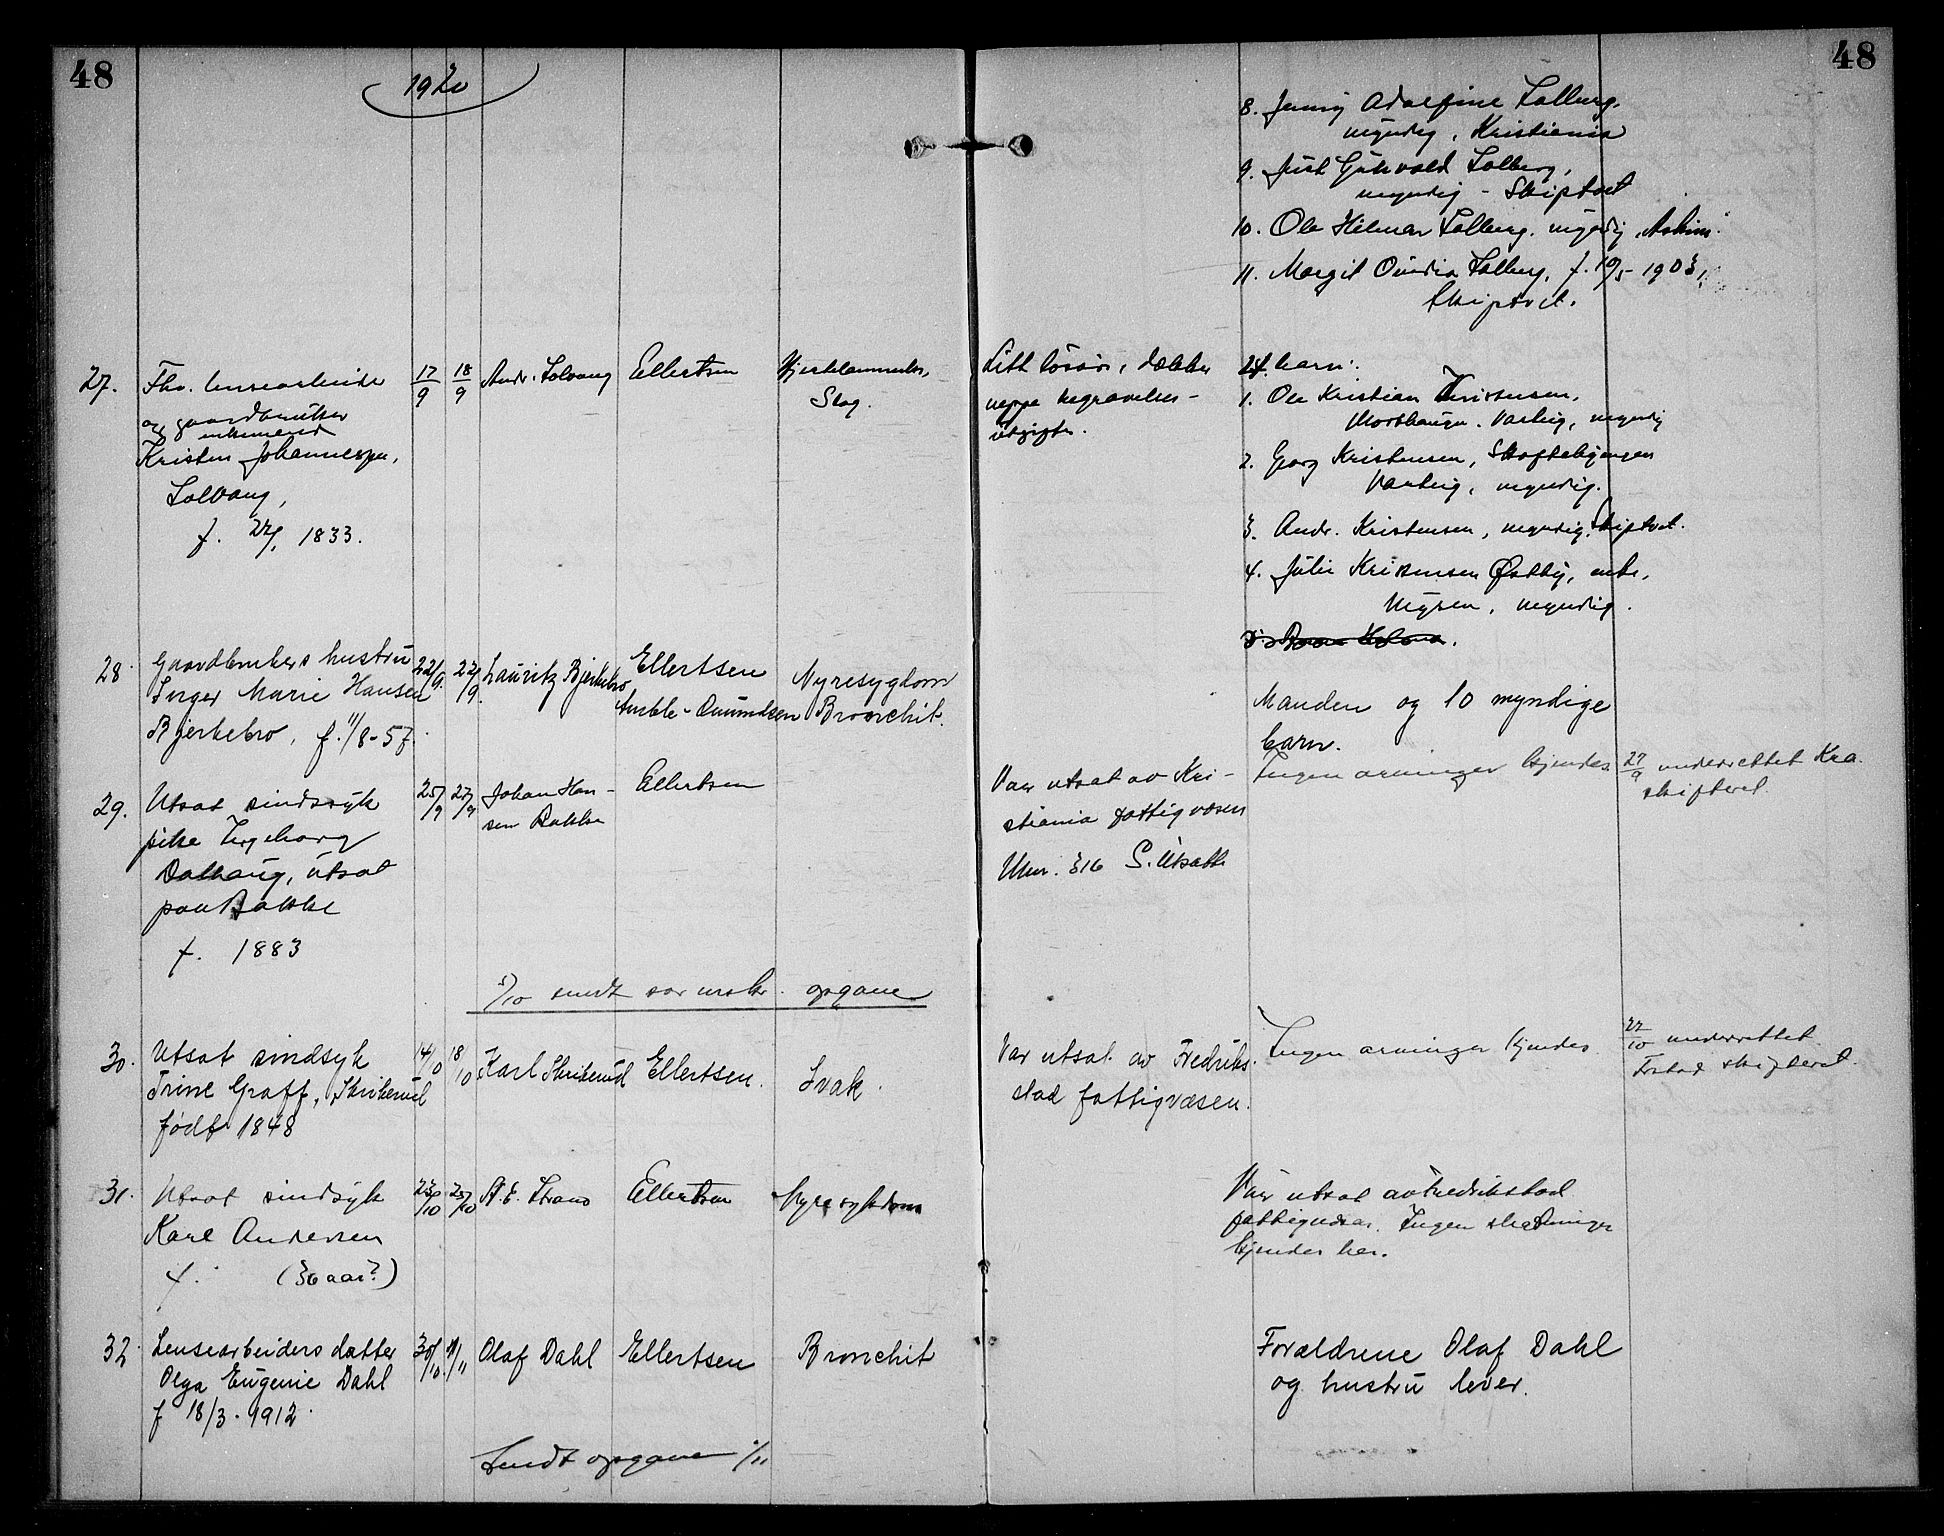 48
1920
48
8. Jenny Adolfine Solberg,
myndig, Kristiania
9. Just Gunvald Solberg,
myndig - Skiptvet
10. Ole Hilmar Solberg, myndig, Askim.
11. Margit Ovidia Solberg, f. 19/5 - 1903,
Skiptvet.
27.
Fhv. lensearbeider
og gaardbruker
enkemand
Kristen Johannesen,
Solvang,
f. 1833.
17/9
18/9
Andr. Solvang
Ellertsen
Hjerteslammelse,
Slag.
Litt løsøre, dækker
neppe begravelses-
utgifter.
4 barn:
1. Ole Kristian Kristensen,
Varteig, myndig
2. Georg Kristensen,
Varteig, myndig.
3. Andr. Kristensen, myndig, Skiptvet.
4. Julie Kristensen Østby, enke,
Mysen, myndig.
28.
Gaardbrukers hustru
Inger Marie Hansen
Bjerkebro, f. 11/8-57.
22/9.
27/9.
Lauritz Bjerkebro
Ellertsen
Nyresygdom
Bronchit.
Manden og 10 myndige
barn.
29.
Utsat sindssyk
pike Ingeborg
Dalhaug, utsat
paa Bakke
f. 1883
25/9
27/9
Johan Han-
sen Bakke
Ellertsen
Var utsat av Kri-
stiania fattigvæsen
Mnr. 316 S. Utsatte
Ingen arvinger kjendes
27/9 underrettet Kra.
skifteret.
5/10 sendt sorenskr. opgave
30.
Utsat sindsyk
Trine Graff, Skribemel
født 1848
14/10
18/10
Karl
Ellertsen.
Svak.
Var utsat av Fredrik-
stad fattigvæsen.
Ingen arvinger kjendes
22/10 underrettet
Frstad skifteret.
31.
Utsat sindsyk
Karl Andersen
f. (30 aar?)
23/10
25/10
Ellertsen
Nyresykdom
Var utsat av Fredrikstad
fattigvæsen. Ingen slegtninger
kjendes her.
32
Lensearbeiders datter
Olga Eugenie Dahl
f 18/3. 1912.
30/10.
Olaf Dahl
Ellertsen
Bronchit
Forældrene Olaf Dahl
og hustru lever.
Sendt opgave